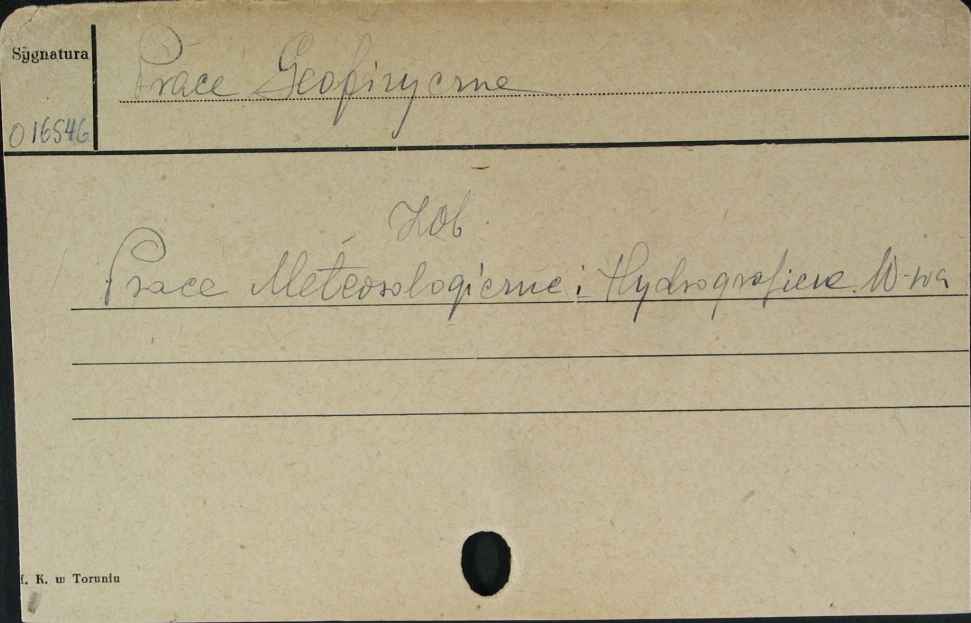 Sygnatura
Prace Geofizyczne
016546
Zob.
Prace Meteorologiczne i Hydrograficzne. W-wa
K. w Toruniu